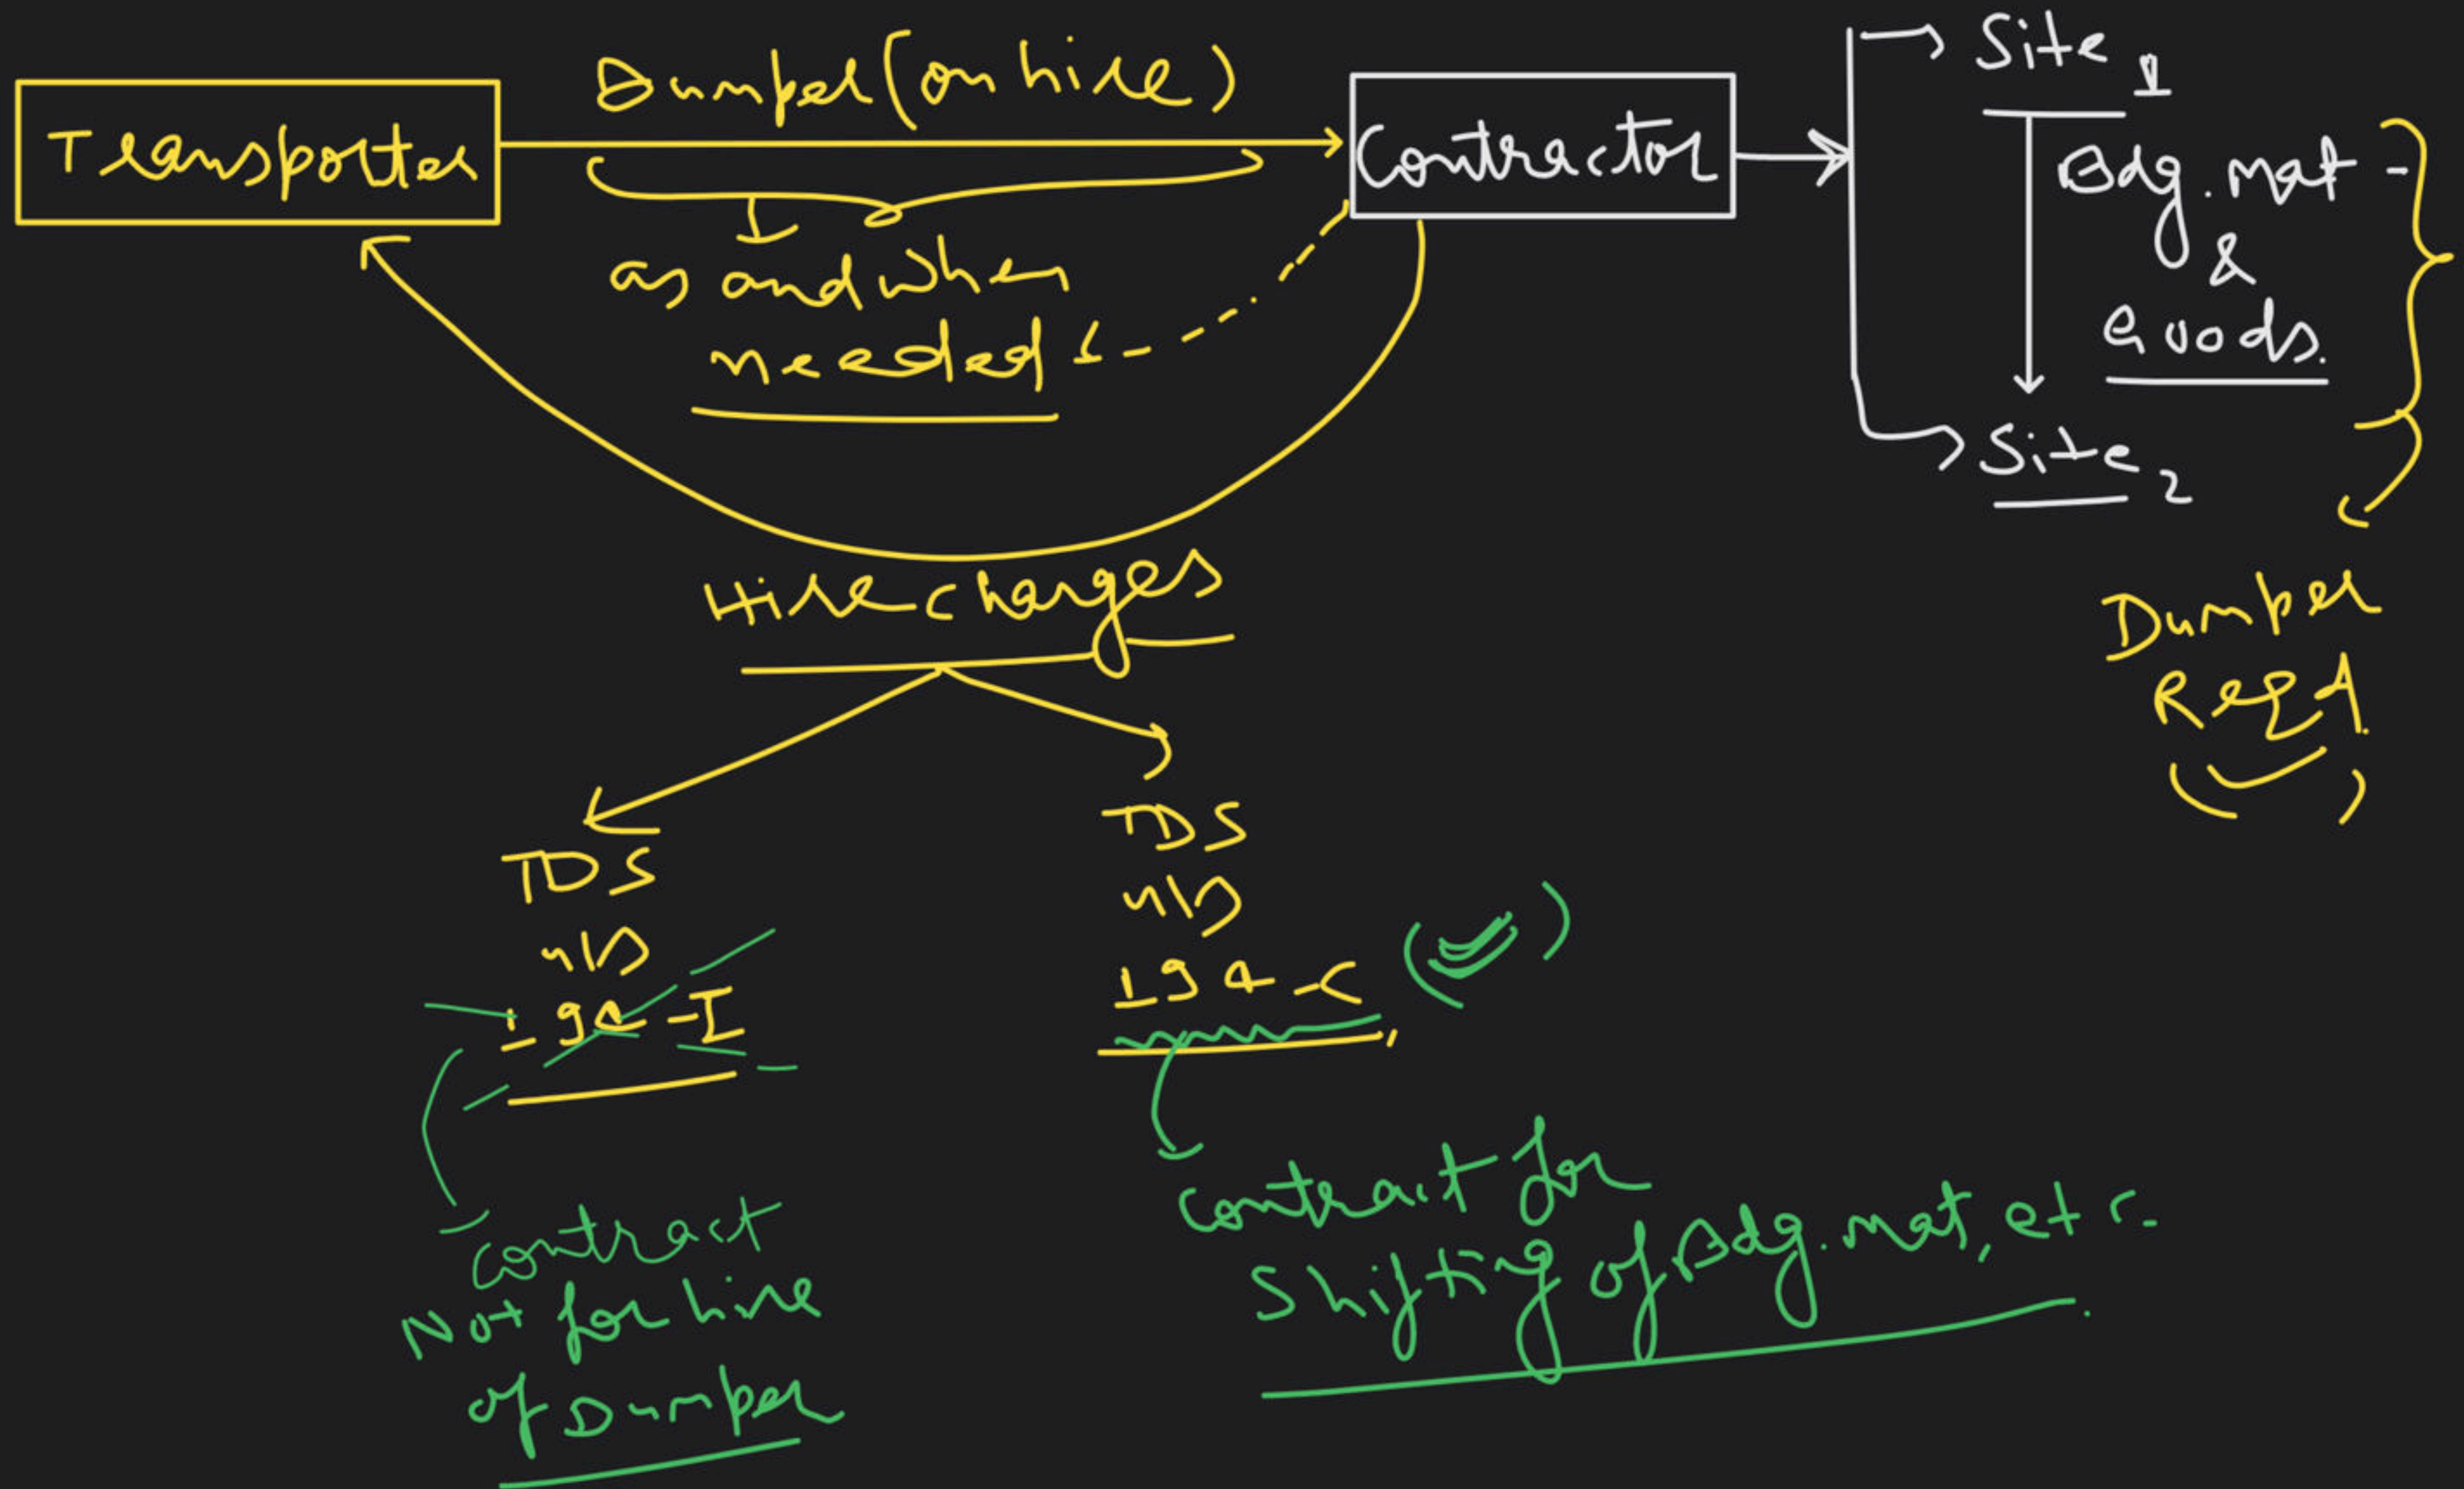 Transporter
Dumper (on hire)
as and when
needed
Contractor
Site 1
Bdg. mat -
&
goods.
Site 2
Dumper
Reqd.
Hire charges
TDS
u/s
194-I
TDS
u/s
194-C
Contract
Not for hire
of Dumper
Contract for
Shifting of Bdg. mat, etc.